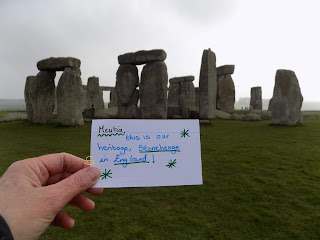 Meutia,
this is our
heritage, Stonehenge
in England!